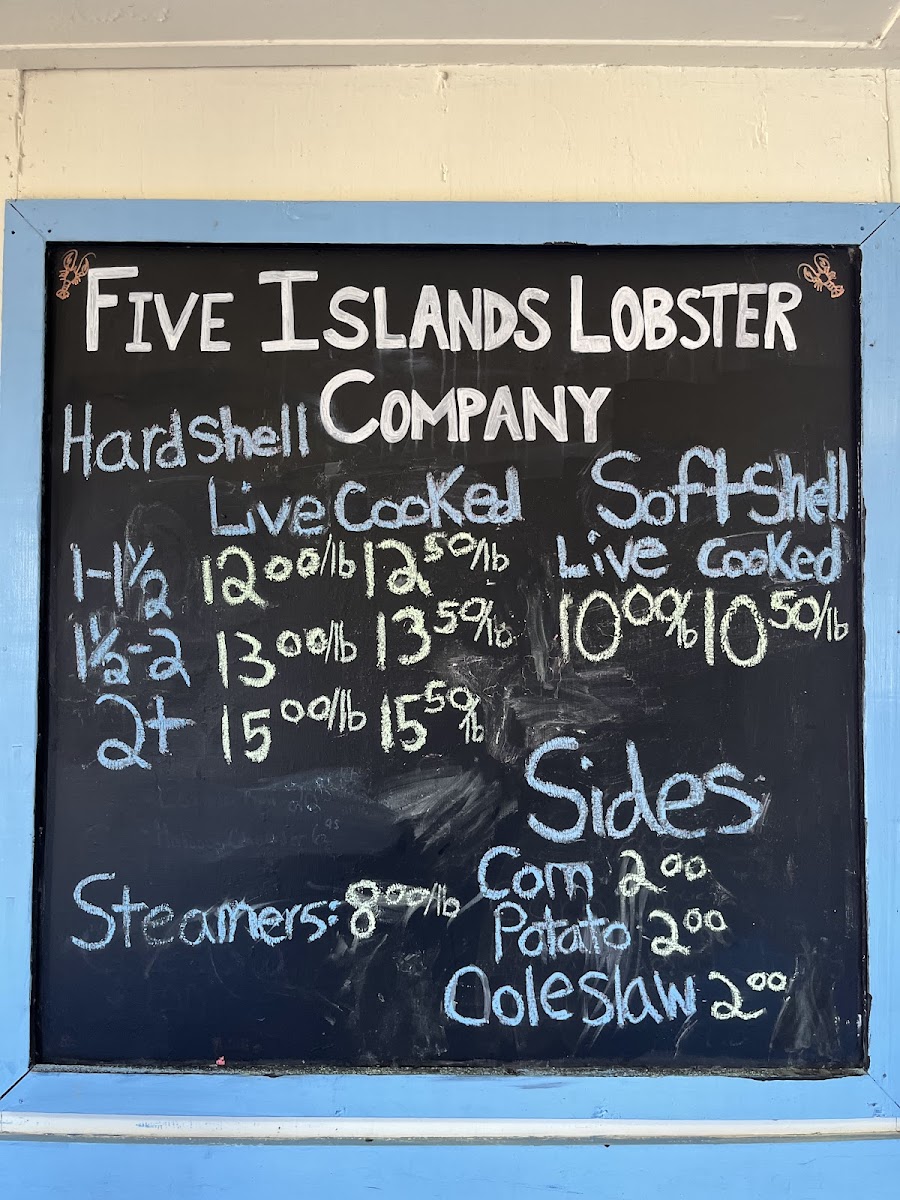 FIVE ISLANDS LOBSTER
COMPANY
Hardshell
Live Cooked
1-1½ 12.00/lb 12.50/lb
1½-2 13.00/lb 13.50/lb
2+ 15.00/lb 15.50/lb
Soft-Shell
Live Cooked
10.00/lb 10.50/lb
Steamers: 8.00/lb
Sides
Corn 2.00
Potato 2.00
Coleslaw 2.00